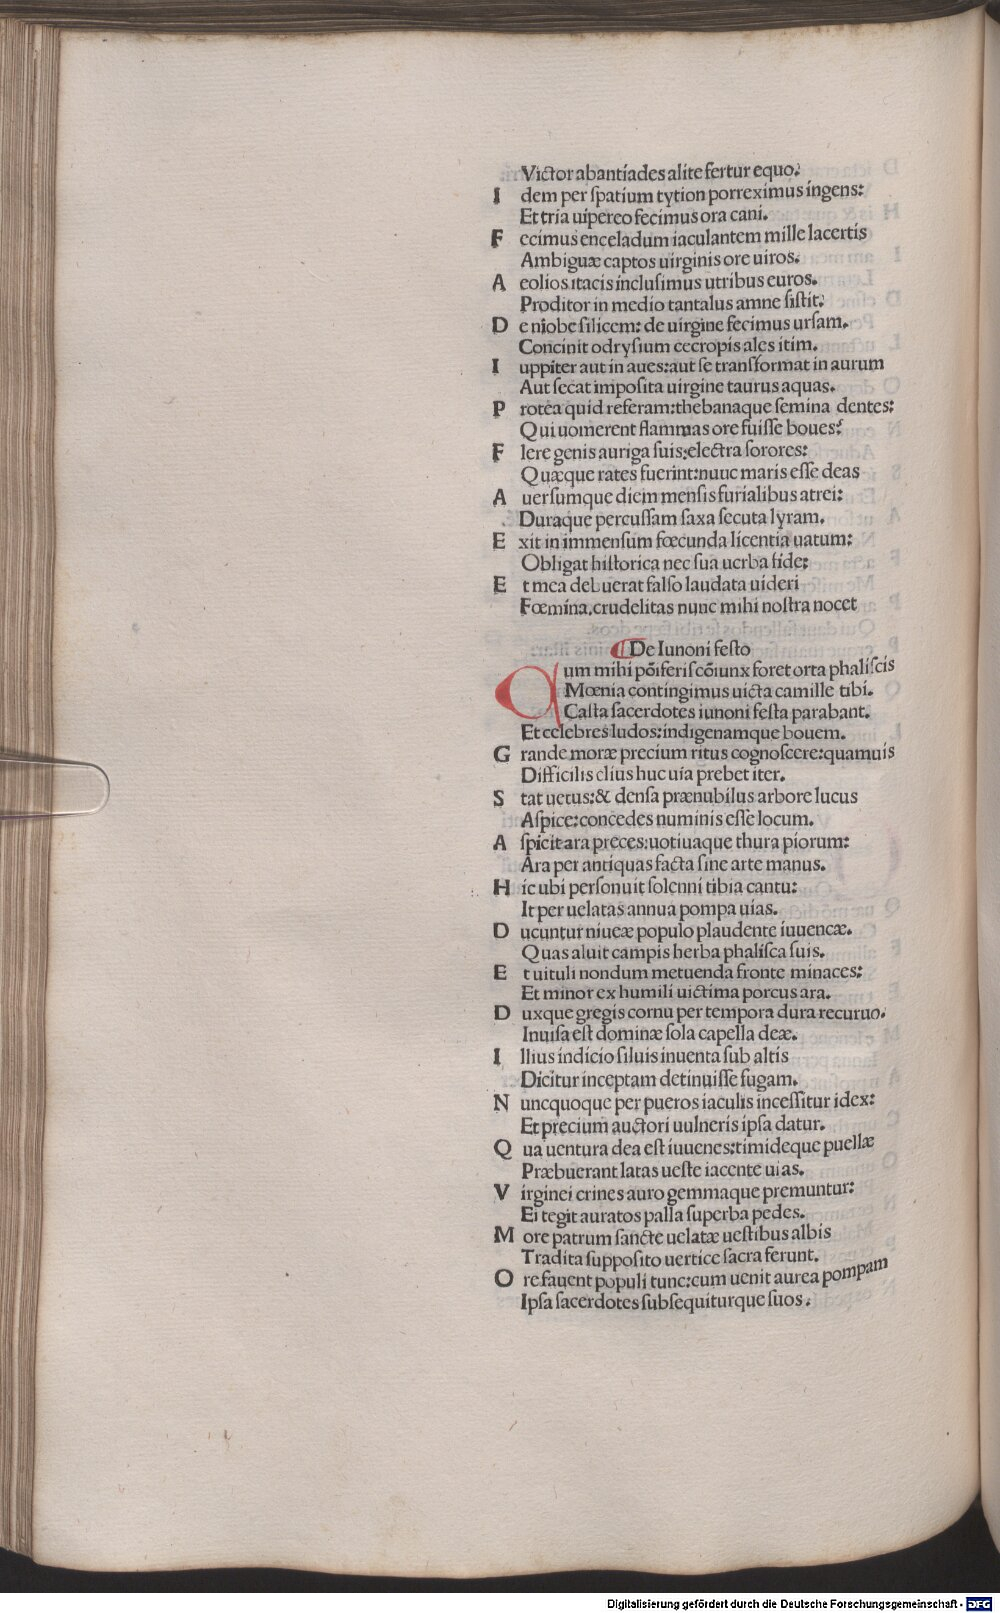 Victor abantiades alite fertur equo.
I dem per ſpatium tytion porreximus ingens:
Et tria uipereo fecimus ora cani.
F ecimus enceladum iaculantem mille lacertis
Ambiguæ captos uirginis ore uiros.
A eolios itacis incluſimus utribus euros.
Proditor in medio tantalus amne ſiſtit.
D e niobe ſilicem: de uirgine fecimus urſam.
Concinit odryſium cecropis ales itim.
I uppiter aut in aues: aut ſe tranſformat in aurum
Aut ſecat impoſita uirgine taurus aquas.
P rotea quid referam: thebanaque ſemina dentes:
Qui uomerent flammas ore fuiſſe boues:
F lere genis auriga ſuis: electra ſorores:
Quæque rates fuerint: nuuc maris eſſe deas
A uerſumque diem menſis furialibus atrei:
Duraque percuſſam ſaxa ſecuta lyram.
E xit in immenſum fœcunda licentia uatum:
Obligat hiſtorica nec ſua uerba fide:
E t mea debuerat falſo laudata uideri
Fœmina. crudelitas nunc mihi noſtra nocet
De Iunoni feſto
Q um mihi põiferis cõiunx foret orta phaliſcis
Mœnia contingimus uicta camille tibi.
Caſta ſacerdotes iunoni feſta parabant.
Et celebres ludos: indigenamque bouem.
G rande moræ precium ritus cognoſcere: quamuis
Difficilis cliuſ huc uia prebet iter.
S tat uetus: & denſa prænubilus arbore lucus
Aſpice: concedes numinis eſſe locum.
A ſpicit ara preces: uotiuaque thura piorum:
Ara per antiquas facta ſine arte manus.
H ic ubi perſonuit ſolenni tibia cantu:
It per uelatas annua pompa uias.
D ucuntur niueæ populo plaudente iuuencæ.
Quas aluit campis herba phaliſca ſuis.
E t uituli nondum metuenda fronte minaces:
Et minor ex humili uictima porcus ara.
D uxque gregis cornu per tempora dura recuruo.
Inuiſa eſt dominæ ſola capella deæ.
I llius indicio ſiluis inuenta ſub altis
Dicitur inceptam detinuiſſe fugam.
N uncquoque per pueros iaculis inceſſitur idex:
Et precium auctori uulneris ipſa datur.
Q ua uentura dea eſt iuuenes: timideque puellæ
Præbuerant latas ueſte iacente uias.
V irginei crines auro gemmaque premuntur:
Ei tegit auratos palla ſuperba pedes.
M ore patrum ſancte uelatæ ueſtibus albis
Tradita ſuppoſito uertice ſacra ferunt.
O re fauent populi tunc: cum uenit aurea pompam
Ipſa ſacerdotes ſubſequiturque ſuos.
Digitalisierung gefördert durch die Deutsche Forschungsgemeinschaft - DFG